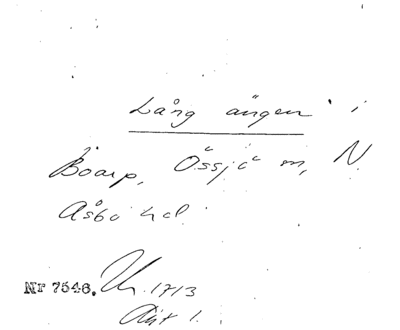 Lång ängen i
Boarp, Össjö sn, N.
Åsbo hd.
Nr 7546. Uh. 1713
Akt 1.